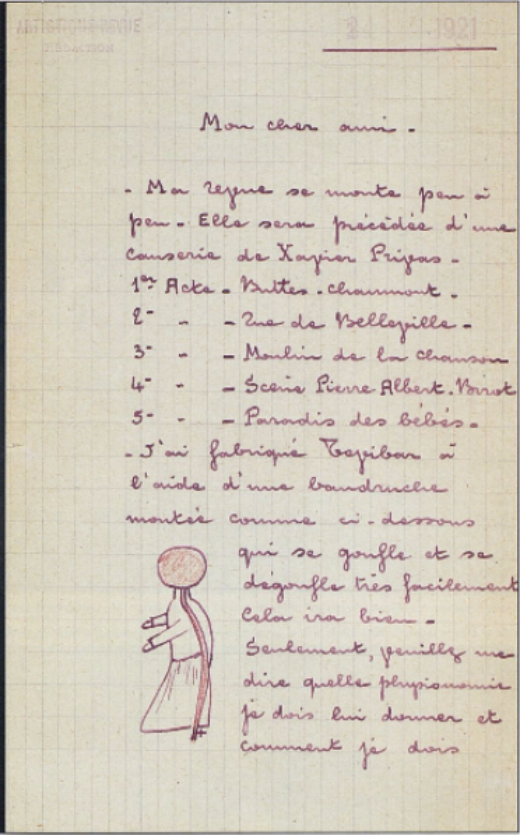 ARTISTIQUE REVUE
RÉDACTION
2 1921
Mon cher ami -
- Ma revue se monte peu à
peu - Elle sera précédée d'une
causerie de Xavier Privas -
1er Acte - Buttes-chaumont -
2- - - Rue de Belleville -
3- - - Moulin de la chanson
4- - - Scène Pierre Albert-Birot
5- - - Paradis des bébés -
- J'ai fabriqué à
l'aide d'une baudruche
montée comme ci-dessous
qui se gonfle et se
dégonfle très facilement
Cela ira bien -
Seulement, veuillez me
dire quelle physionomie
je dois lui donner et
comment je dois